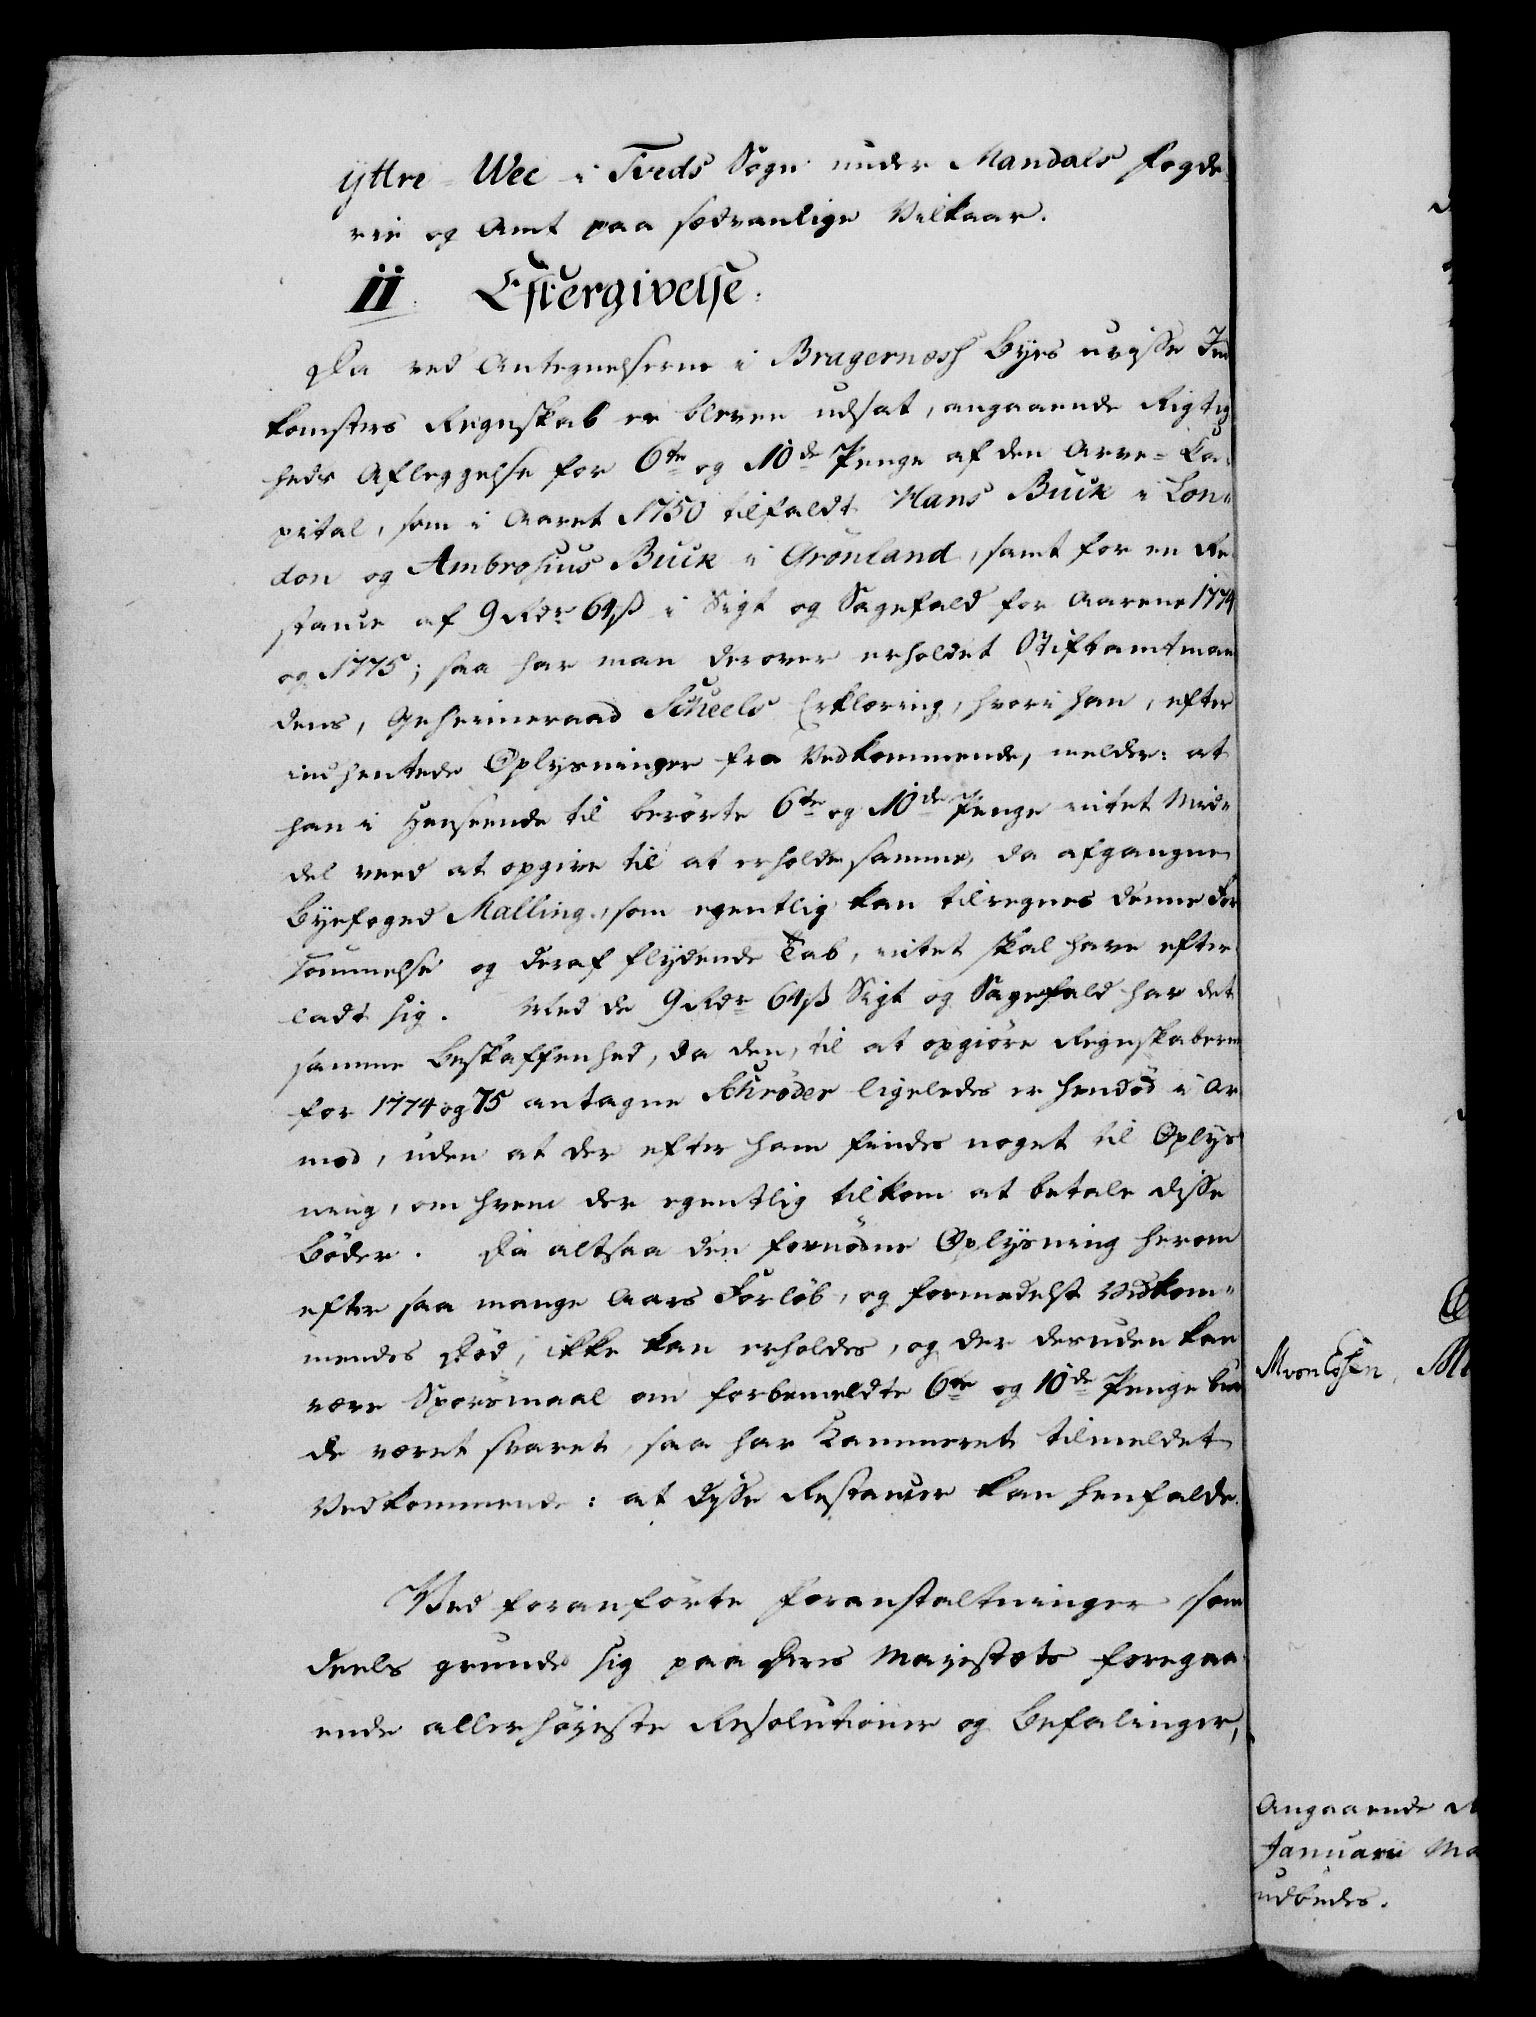 ÿttre Wee i Tveds Sogn under Mandals Fogde
rie og Amt paa sædvanlige Vilkaar.
11. Eftergivelse.
Da ved Antegnelserne i Bragernæsh Byes uvisse Ind
komsters Regnskab er bleven udsat, angaaende Rigtig
heds Aflæggelse for 6te og 10de Penge af den Arve-Ca-
pital, som i Aaret 1750 tilfaldt Hans Buck i Lon-
don og Ambrosius Buck i Grønland, samt for en Re
stance af 9 Rdr 64 ß i Sigt og Sagefald for Aarene 1774
og 1775; saa har man derover erholdet Stiftamtman
dens, Geheimeraad Scheels Erklæring, hvori han, efter
indhentede Oplysninger fra Vedkommende, melder: at
han i Henseende til berørte 6te og 10de Penge intet Mid-
del veed at opgive til at erholde samme, da afgangne
Byefoged Malling, som egentlig kan tilregnes denne For
sømmelse og deraf flydende Tab, intet skal have efter
ladt sig. Med de 9 Rdr 64 ß Sigt og Sagefald har det
samme Beskaffenhed, da den, til at opgiøre Regnskaberne
for 1774 og 75 antagne Schrøder ligeledes er hendød i Ar
mod, uden at der efter ham findes noget til Oplys
ning, om hvem der egentlig tilkom at betale disse
Bøder. Da altsaa den fornødne Oplysning herom
efter saa mange Aars Forløb, og formedelst Vedkom-
mendes Død, ikke kan erholdes, og der desuden kan
være Spørsmaal om forbemeldte 6te og 10de Penge bur
de været svaret, saa har Kammeret tilmeldet
Vedkommende: at disse Restancer kan henfalde.
Ved foranførte Foranstaltninger som
deels grunde sig paa Deres Majestæts foregaa
ende allerhøjeste Resolutioner og Befalinger,
Angaaende
Januarii
udbedes.